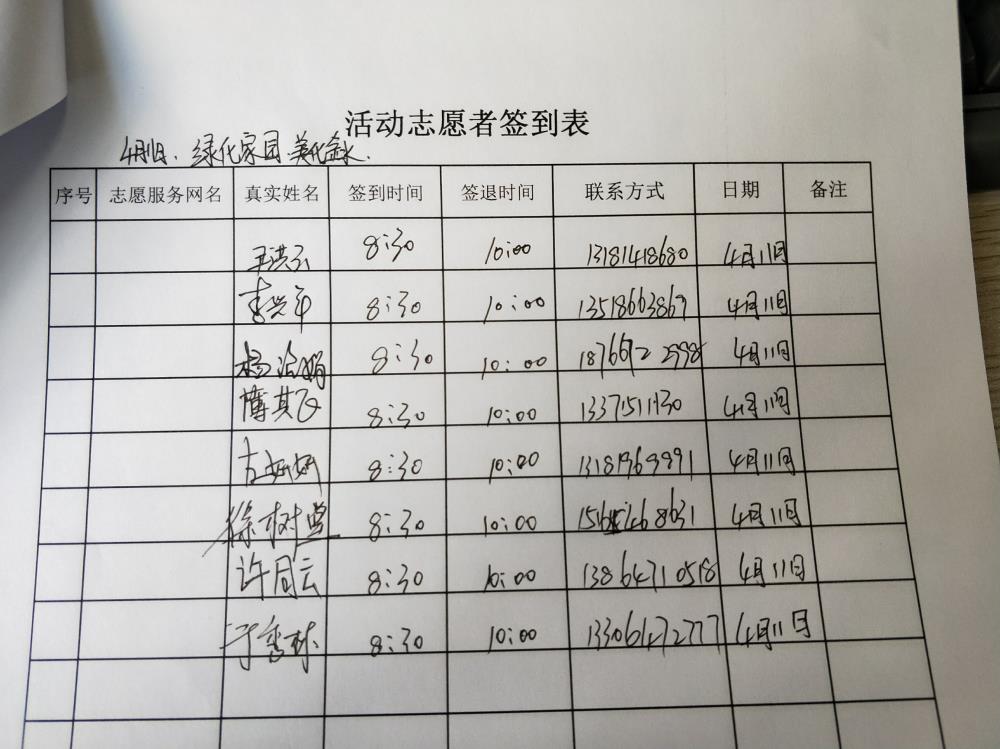 活动志愿者签到表
4月11日. 绿化家园 美化
序号 志愿服务网名 真实姓名 签到时间 签退时间 联系方式 日期 备注
王洪云 8:30 10:00 13181418680 4月11日
李兴华 8:30 10:00 13518663869 4月11日
杨 8:30 10:00 4月11日
薄其飞 8:30 10:00 4月11日
8:30 10:00 4月11日
徐树 8:30 10:00 4月11日
许同云 8:30 10:00 13864710518 4月11日
于秀球 8:30 10:00 13306472777 4月11日